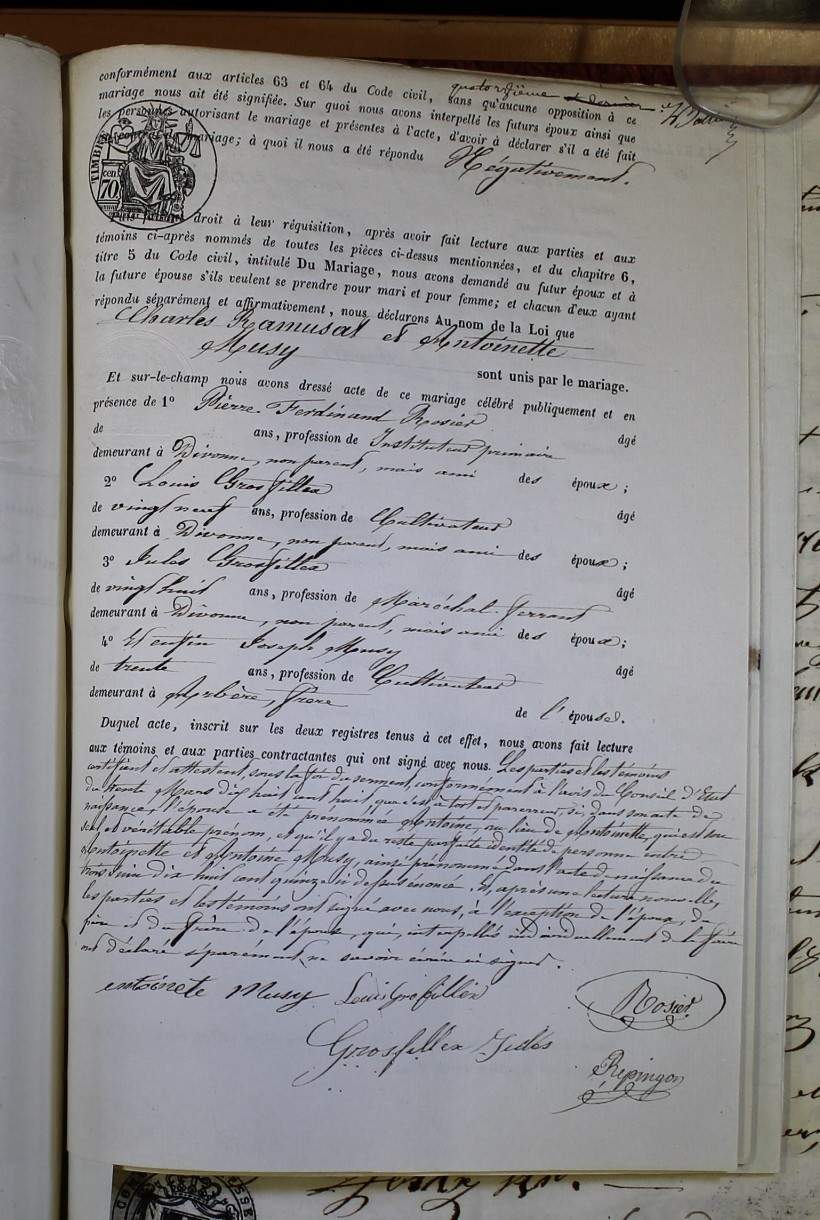 quatorzième et dernier
conformément aux articles 63 et 64 du Code civil, sans qu'aucune opposition à ce
mariage nous ait été signifiée. Sur quoi nous avons interpellé les futurs époux ainsi que
les personnes autorisant le mariage et présentes à l'acte, d'avoir à déclarer s'il a été fait
mariage; à quoi il nous a été répondu Négativement.
TIMBRE
cen
70
droit à leur réquisition, après avoir fait lecture aux parties et aux
témoins ci-après nommés de toutes les pièces ci-dessus mentionnées, et du chapitre 6,
titre 5 du Code civil, intitulé Du Mariage, nous avons demandé au futur époux et à
la future épouse s'ils veulent se prendre pour mari et pour femme; et chacun d'eux ayant
répondu séparément et affirmativement, nous déclarons Au nom de la Loi que
Charles Ramusat et Antoinette
Musy
sont unis par le mariage.
Et sur-le-champ nous avons dressé acte de ce mariage célébré publiquement et en
présence de 1º Pierre Ferdinand Rosier âgé
de ans, profession de Instituteur primaire
demeurant à Divonne, non parent, mais ami des époux;
2º Louis Grosfillex âgé
de vingt neuf ans, profession de Cultivateur
demeurant à Divonne, non parent, mais ami des époux;
3º Jules Grosfillex âgé
de vingt huit ans, profession de Maréchal-ferrant
demeurant à Divonne, non parent, mais ami des époux;
4º Et enfin Joseph Musy âgé
de trente ans, profession de Cultivateur
demeurant à Arbère, frère de l'épouse.
Duquel acte, inscrit sur les deux registres tenus à cet effet, nous avons fait lecture
aux témoins et aux parties contractantes qui ont signé avec nous. Les parties et les témoins
certifient et attestent, sous la foi du serment, conformément à l'avis du Conseil d'Etat
du trente Mars dix huit cent huit, que c'est à tort et par erreur, si, dans son acte de
naissance, l'épouse a été prénommée Antoine, au lieu de Antoinette, qui est son
seul et véritable prénom, et qu'il y a du reste parfaite identité de personne entre
Antoinette et Antoine Musy, ainsi prénommé dans l'acte de naissance du
trois Juin dix huit cent quinze ci dessus énoncé. Et, après une lecture nouvelle,
les parties et les témoins ont signé avec nous, à l'exception de l'époux, du
père et du frère de l'épouse, qui, interpellés individuellement de le faire
ont déclaré séparément ne savoir écrire ni signer.
entoinete Musy Louis Grosfillex Rosier
Grosfillex Jules
Repingon